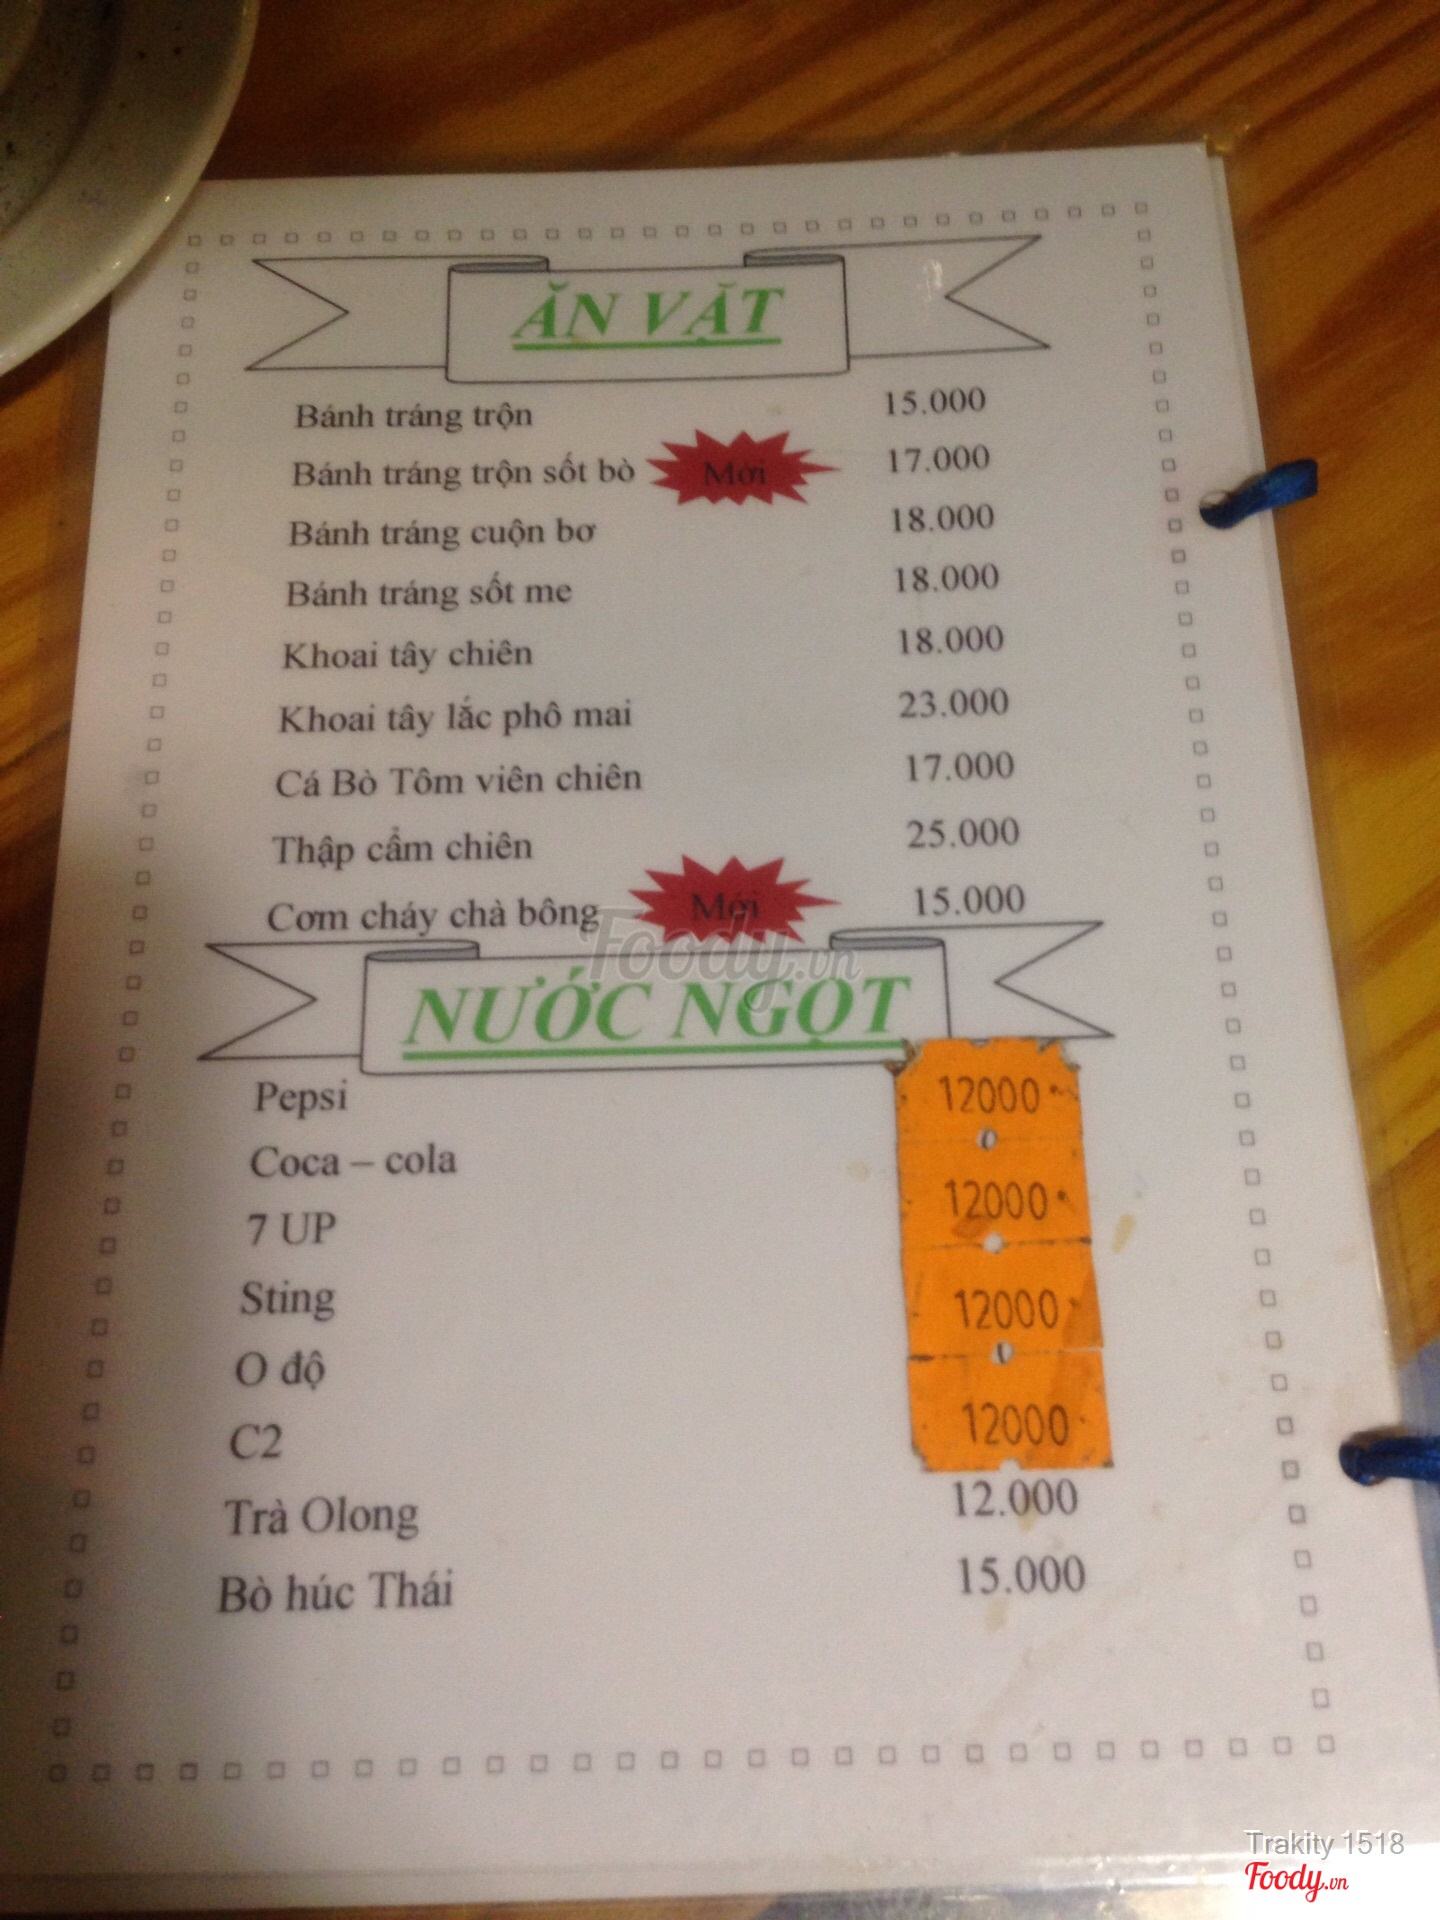 ĂN VẶT
Bánh tráng trộn 15.000
Bánh tráng trộn sốt bò Mới 17.000
Bánh tráng cuộn bơ 18.000
Bánh tráng sốt me 18.000
Khoai tây chiên 18.000
Khoai tây lắc phô mai 23.000
Cá Bò Tôm viên chiên 17.000
Thập cẩm chiên 25.000
Cơm cháy chà bông Mới 15.000
Foody.vn
NƯỚC NGỌT
Pepsi 12000
Coca – cola
7 UP 12000
Sting 12000
O độ
C2 12000
Trà Olong 12.000
Bò húc Thái 15.000
Trakity 1518
Foody.vn